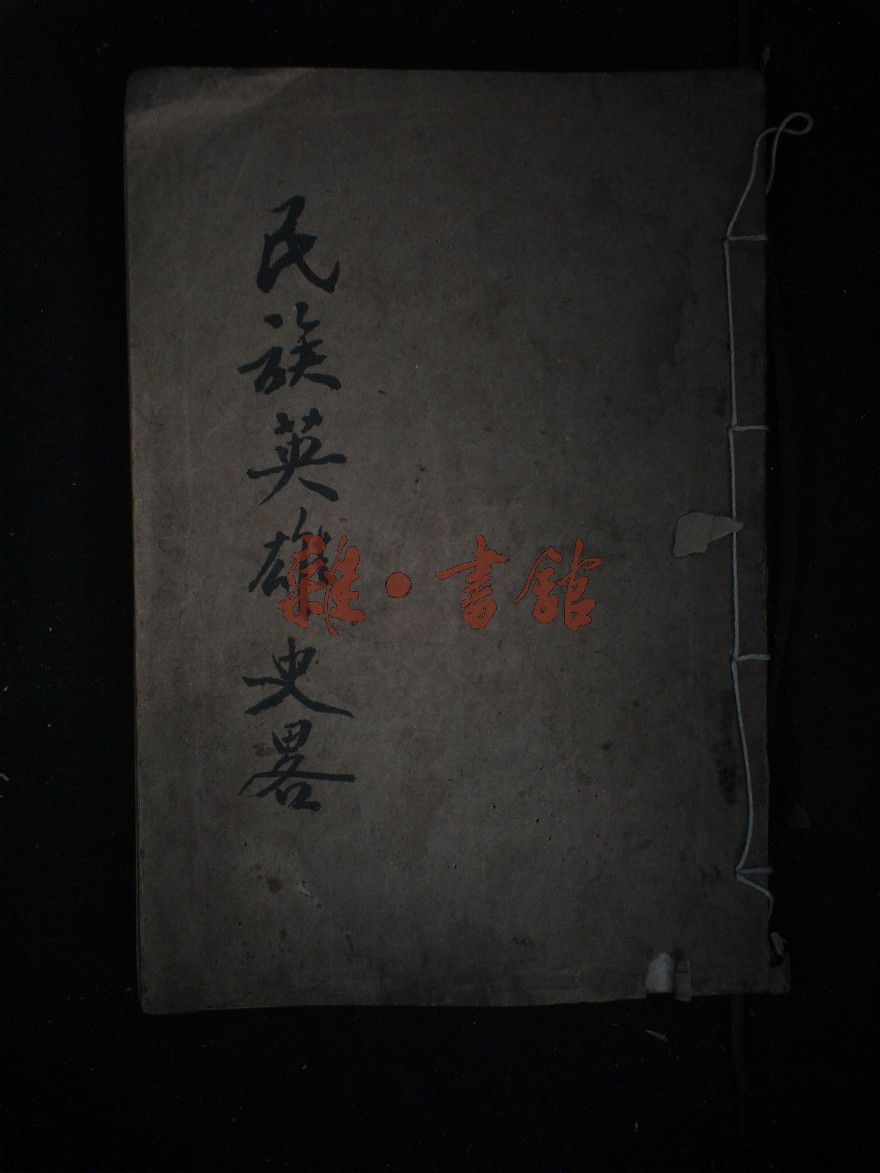 民族英雄史畧
雜·書館